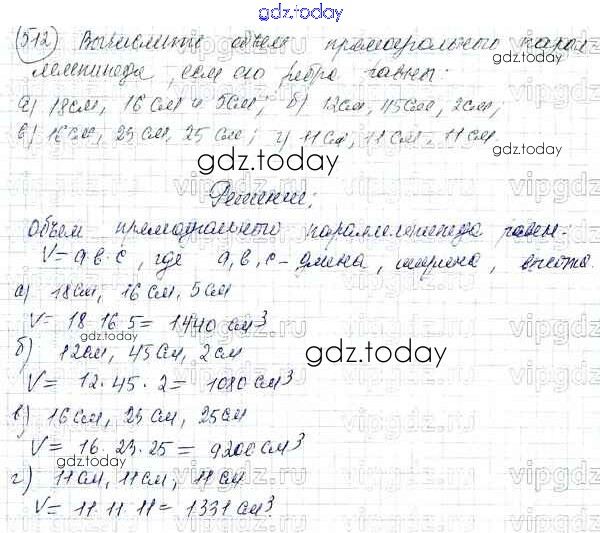 gdz.today
512) Вычислите объем прямоугольного парал
лелепипеда, если его ребра равны:
а) 18см, 16 см и 5см; б) 12см, 45см, 2см;
в) 16см, 23 см, 25 см; г) 11 см, 11 см, 11 см.
gdz.today
gdz.today
Решение:
Объем прямоугольного параллелепипеда равен:
V=a·b·c, где a, b, c - длина, ширина, высота.
а) 18см, 16 см, 5 см
V= 18·16·5= 1440 см³
gdz.today
б) 12см, 45см, 2см
gdz.today
V= 12·45·2= 1080 см³
в) 16см, 23 см, 25см
V= 16·23·25= 9200см³
gdz.today
г) 11 см, 11см, 11 см
V= 11·11·11= 1331 см³.
gdz.today